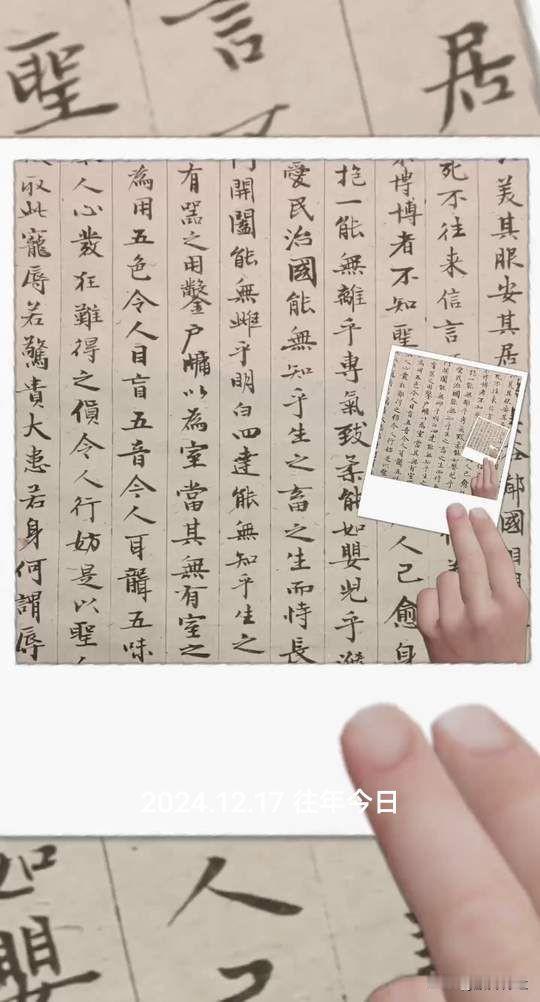 居
言
聖
美其服安其居
鄰國
死不往来信言
博博者不知聖
人己愈身
抱一能無離乎專氣致柔能如嬰児乎滌
愛民治國能無知乎生之畜之生而恃長
開闔能無雌乎明白四達能無知乎生之
有器之用鑿户牖以為室當其無有室之
為用五色令人目盲五音令人耳聾五味
人心發狂難得之貨令人行妨是以聖
取此寵辱若驚貴大患若身何謂辱
2024.12.17 往年今日
人己
如嬰